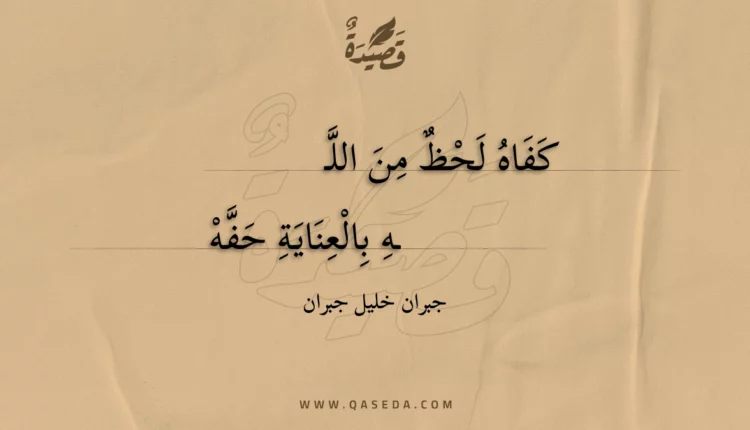 قَصِيْدَةٌ
كَفَاهُ لَحْظٌ مِنَ اللَّـ
ـهِ بِالْعِنَايَةِ حَفَّهْ
جبران خليل جبران
WWW.QASEDA.COM